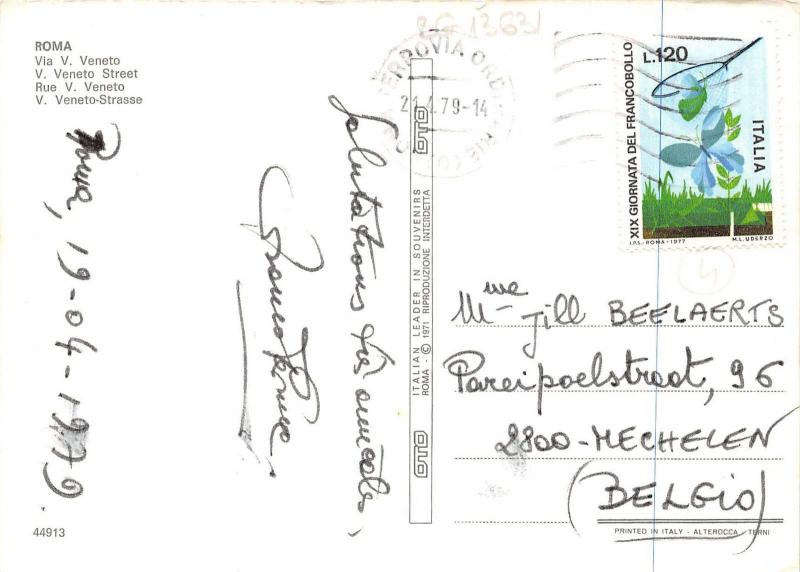 ROMA
Via V. Veneto
V. Veneto Street
Rue V. Veneto
V. Veneto-Strasse
Roma, 19-04-1979.
Salutations très amicales,
44913
ITALIAN LEADER IN SOUVENIRS
ROMA - © 1971 RIPRODUZIONE INTERDETTA
OTO
OTO
FERROVIA ORD
21.4.79-14
L.120
XIX GIORNATA DEL FRANCOBOLLO
ITALIA
I.P.S.-ROMA-1977
M.L. UDERZO
4
Mme Jill BEELAERTS
Pareipoelstraat, 96
2800-MECHELEN
(BELGIO)
PRINTED IN ITALY - ALTEROCCA - TERNI